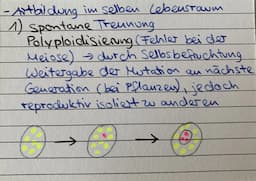 - Artbildung im selben Lebensraum
1) spontane Trennung
Polyploidisierung (Fehler bei der
Meiose) → durch Selbsbefruchtung
Weitergabe der Mutation an nächste
Generation (bei Pflanzen), jedoch
reproduktiv isoliert zu anderen